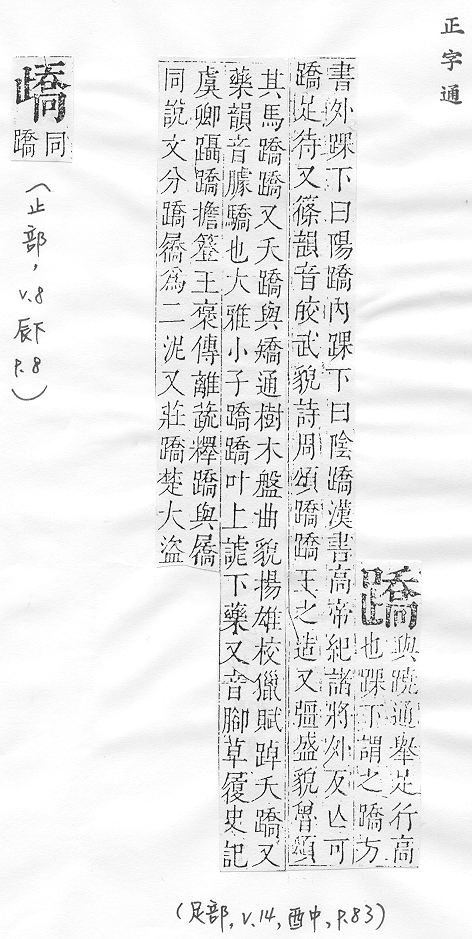 正字通
蹻
與蹺通舉足行高
也踝下謂之蹻方
書外踝下曰陽蹻內踝下曰陰蹻漢書高帝紀諸將外反亾可
蹻足待又篠韻音皎武貌詩周頌蹻蹻王之造又彊盛貌魯頌
其馬蹻蹻又夭蹻與矯通樹木盤曲貌揚雄校獵賦踔夭蹻又
藥韻音臄驕也大雅小子蹻蹻叶上謔下藥又音腳草履史記
虞卿躡蹻擔簦王襃傳離蔬釋蹻與屩
同說文分蹻屩爲二泥又莊蹻楚大盜
(足部, v.14, 酉中, p.83)
同
蹻
(止部, v.8 辰下 p.8)